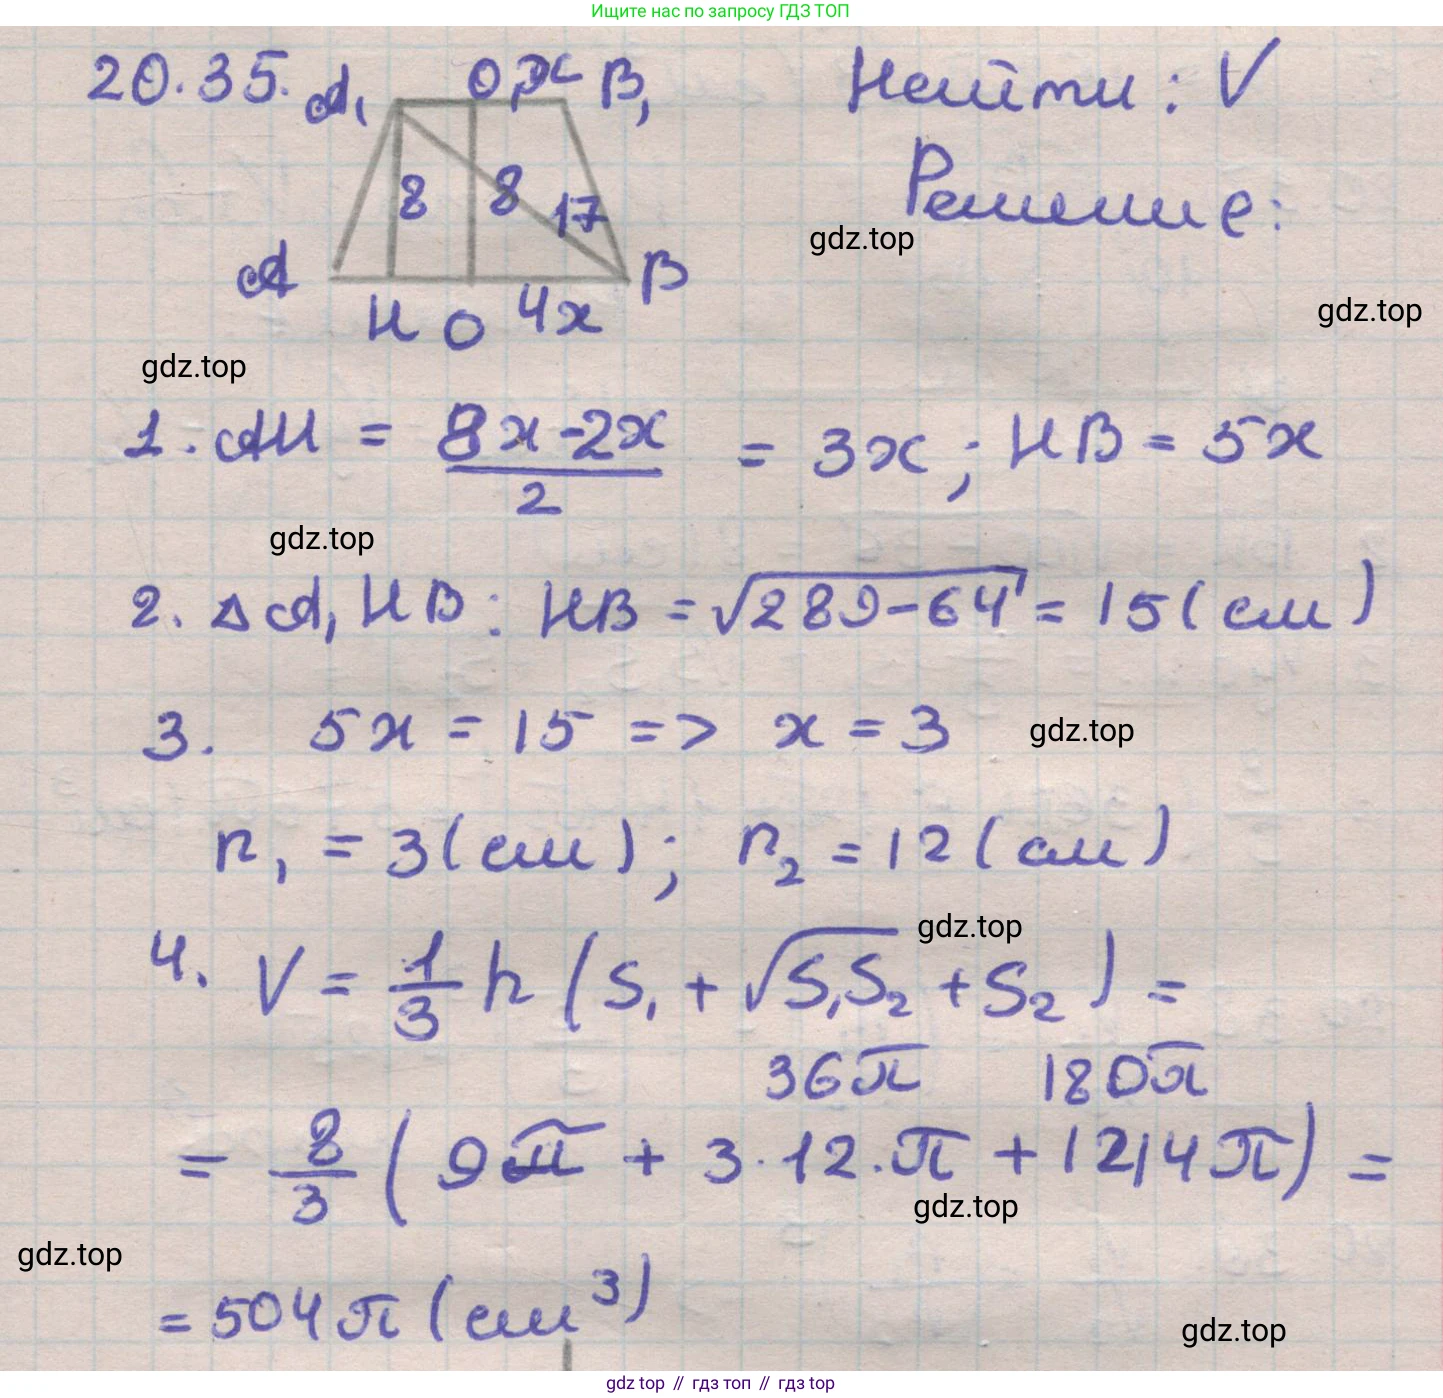 Ищите нас по запросу ГДЗ ТОП
20.35.
A₁ O₁ x B₁
Найти: V
8 8 17
Решение:
gdz.top
A B
H O 4x
gdz.top
gdz.top
1. AH = (8x-2x)/2 = 3x; HB = 5x
gdz.top
2. △A₁HB: HB = √(289-64) = 15(см)
3. 5x = 15 => x = 3
gdz.top
r₁ = 3(см); r₂ = 12(см)
gdz.top
4. V = 1/3 h (S₁ + √(S₁S₂) + S₂) =
36π 180π
= 8/3 (9π + 3·12·π + 144π) =
gdz.top
gdz.top
= 504π(см³)
gdz.top
gdz top // гдз топ // гдз top